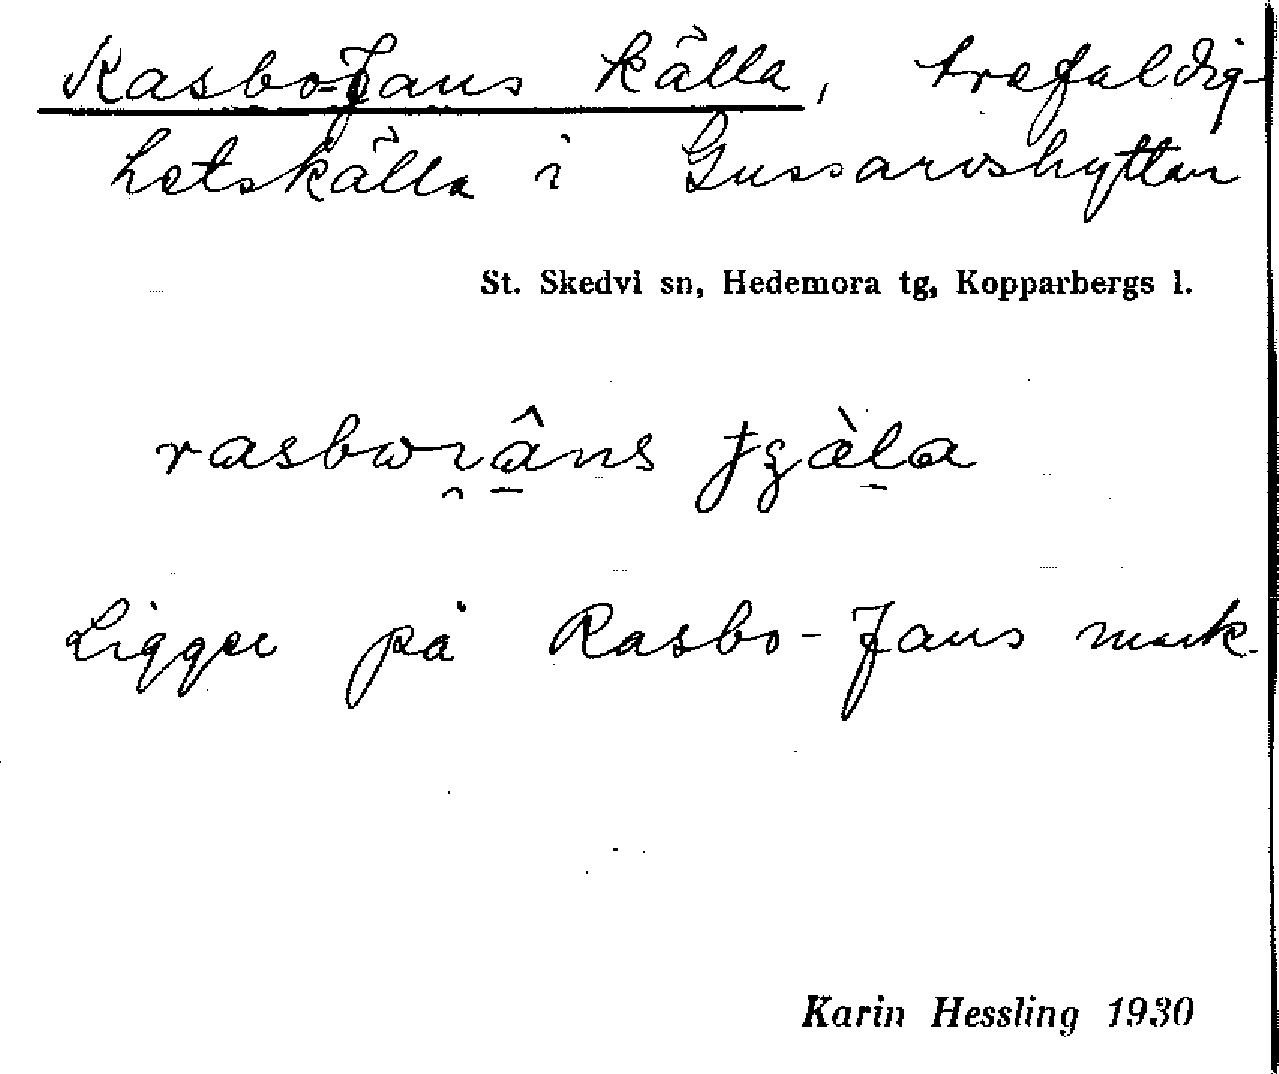 Rasbo-Jans källa, trefaldig-
hetskälla i Gussarvshyttan
St. Skedvi sn, Hedemora tg, Kopparbergs l.
Ligger på Rasbo-Jans mark.
Karin Hessling 1930